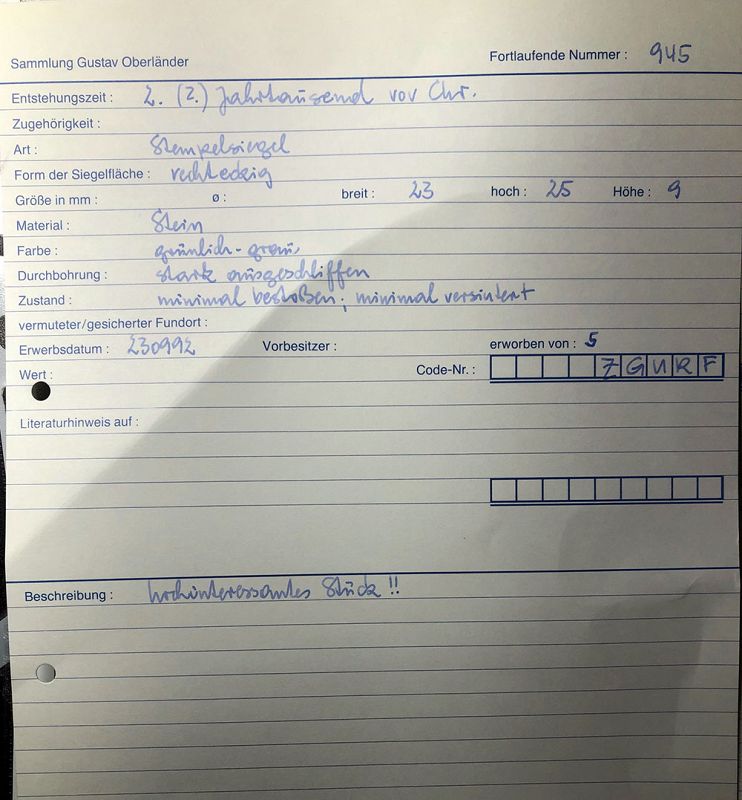 Sammlung Gustav Oberländer Fortlaufende Nummer : 945
Entstehungszeit : 2. (2.) Jahrtausend vor Chr.
Zugehörigkeit :
Art : Stempelsiegel
Form der Siegelfläche : rechteckig
Größe in mm : ø : breit : 23 hoch : 25 Höhe : 9
Material : Stein
Farbe : grünlich-grau
Durchbohrung : stark ausgeschliffen
Zustand : minimal bestoßen; minimal versintert
vermuteter/gesicherter Fundort :
Erwerbsdatum : 230992 Vorbesitzer : erworben von : 5
Wert : Code-Nr. : ZGURF
Literaturhinweis auf :
Beschreibung : hochinteressantes Stück !!